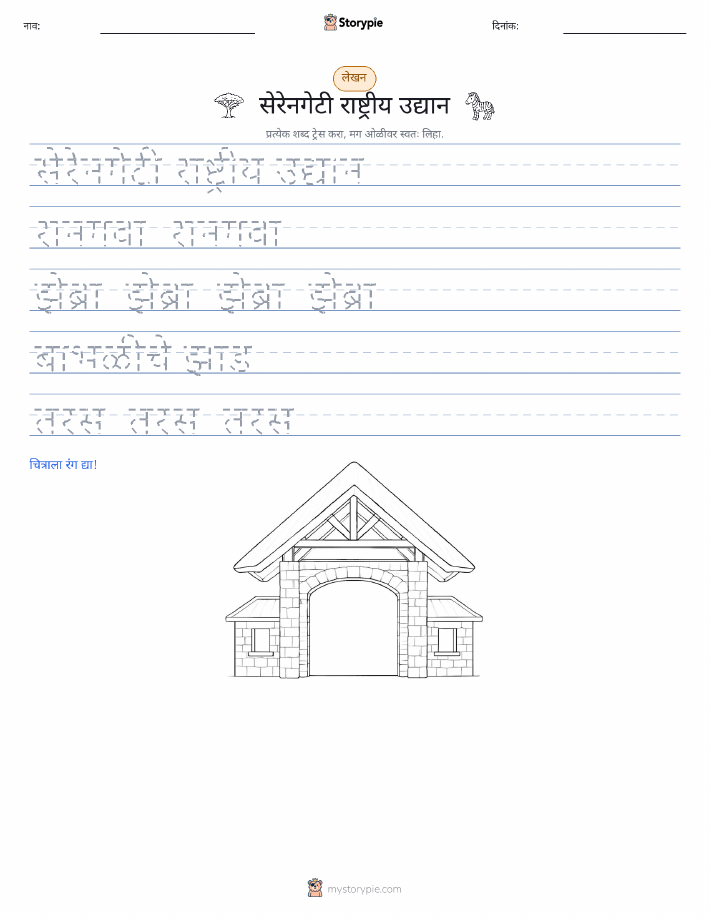 नाव:
Storypie
दिनांक:
लेखन
सेरेनगेटी राष्ट्रीय उद्यान
प्रत्येक शब्द ट्रेस करा, मग ओळीवर स्वतः लिहा.
सेरेनगेटी राष्ट्रीय उद्यान
रानगवा रानगवा
झेब्रा झेब्रा झेब्रा झेब्रा
बाभळीचे झाड
तरस तरस तरस
चित्राला रंग द्या!
mystorypie.com